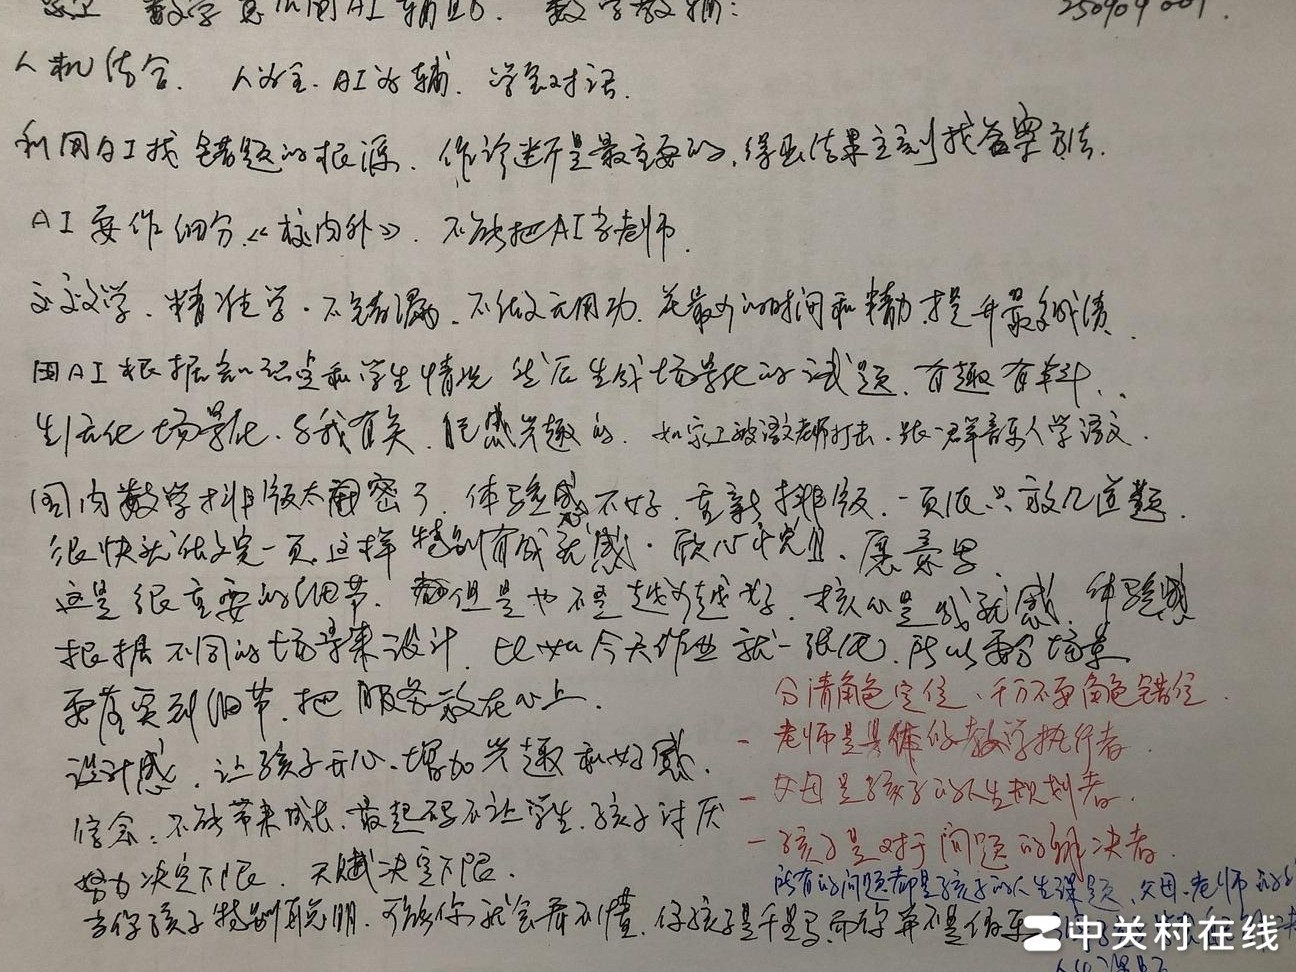 数学怎么用AI辅助. 数学教辅:
250909 001.
人机结合. 人为主. AI为辅. 学会对话.
利用AI找错题的根源. 作诊断是最重要的. 结果立刻找答案方法.
AI要作细分《校内外》. 不能把AI当老师.
精准学. 不错漏. 不做无用功. 花最少的时间和精力提升最多成绩.
用AI根据知识点和学生情况 然后生成场景化的试题. 有趣有料...
生活化场景化. 与我有关. 感兴趣的. 如被语文老师打击. 跟一群音乐人学语文.
国内数学排版太密了. 体验感不好. 重新排版. 一页纸只放几道题.
很快就做完一页. 这样特别有成就感. 愿意学.
这是很重要的细节. 但是也不是越少越好. 核心是成就感. 体验感
根据不同的场景来设计. 比如今天作业就一张纸. 所以要分场景
要落实到细节. 把服务放在心上.
分清角色定位、千万不要角色错位
- 老师是具体的教学执行者.
- 父母是孩子的人生规划者.
- 孩子是对于问题的解决者.
设计感. 让孩子开心. 增加兴趣和好感.
信念: 不能带来成长. 最起码不让学生. 孩子讨厌
努力决定下限. 天赋决定上限.
所有的问题都是孩子的人生课题、父母、老师
当你孩子特别聪明. 可能你就会看不懂. 你孩子是千里马而你并不是伯乐
中关村在线